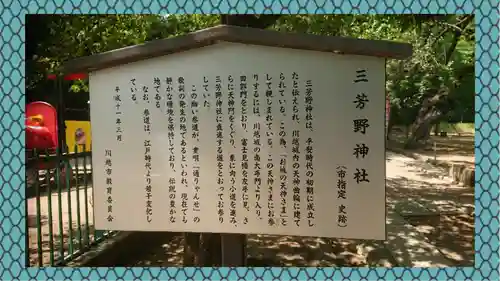 三芳野神社
（市指定 史跡）
三芳野神社は、平安時代の初期に成立し
たと伝えられ、川越城内の天神曲輪に建て
られている。この為、「お城の天神さま」と
して親しまれている。この天神さまにお参
りするには、川越城の南大手門より入り、
田郭門をとおり、富士見櫓を左手に見、さ
らに天神門をくぐり、東に向う小道を進み、
三芳野神社に直進する道をとおってお参り
していた。
この細い参道が、童唄「通りゃんせ」の
歌詞の発生の地であるといわれ、現在でも
静かな環境を保持しており、伝説の豊かな
地である。
なお、参道は、江戸時代より若干変化し
ている。
平成十一年三月
川越市教育委員会